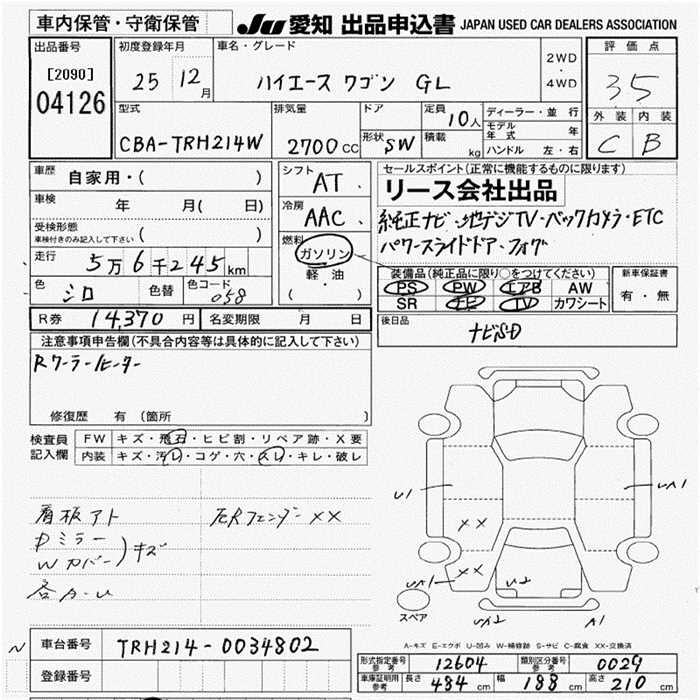 車内保管・守衛保管
JU 愛知 出品申込書 JAPAN USED CAR DEALERS ASSOCIATION
出品番号
[2090]
04126
初度登録年月
25 12月
車名・グレード
ハイエース ワゴン GL
2WD
・
4WD
評価点
3.5
外装 内装
C B
型式
CBA-TRH214W
排気量
2700cc
ドア
形状 SW
定員 10人
積載 kg
ディーラー・並行
モデル年式 年
ハンドル 左・右
車歴 自家用・( )
車検 年 月( 日)
受検形態
車検付きのみ記入して下さい ( )
走行 5万6千245km
色 シロ 色替 色コード 058
シフト AT
冷房 AAC
燃料
ガソリン
軽・油
( )
セールスポイント(正常に機能するものに限ります)
リース会社出品
純正ナビ・地デジTV・バックカメラ・ETC
パワースライドドア・フォグ
装備品(純正品に限り○をつけてください)
PS PW エアB AW
SR ナビ TV カワシート
新車保証書
有・無
R券 14,370円 名変期限 月 日
後日品
ナビSD
注意事項申告欄(不具合内容等は具体的に記入して下さい)
Rクーラー/ヒーター
修復歴 有(箇所
検査員記入欄
FW キズ・飛石・ヒビ割・リペア跡・X要
内装 キズ・汚レ・コゲ・穴・スレ・キレ・破レ
看板アト 左Rフェンダー XX
Dミラー
Wカバー )キズ
各A-U
U1
UA1
XX
XX
UA1
U2
UA2
A1
スペア
A-キズ E-エクボ U-凹み W-補修跡 S-サビ C-腐食 XX-交換済
車台番号 TRH214-0034802
登録番号
形式指定番号 参考 12604 類別区分番号 参考 0029
車庫証明用 参考 長さ 484cm 幅 188cm 高さ 210cm